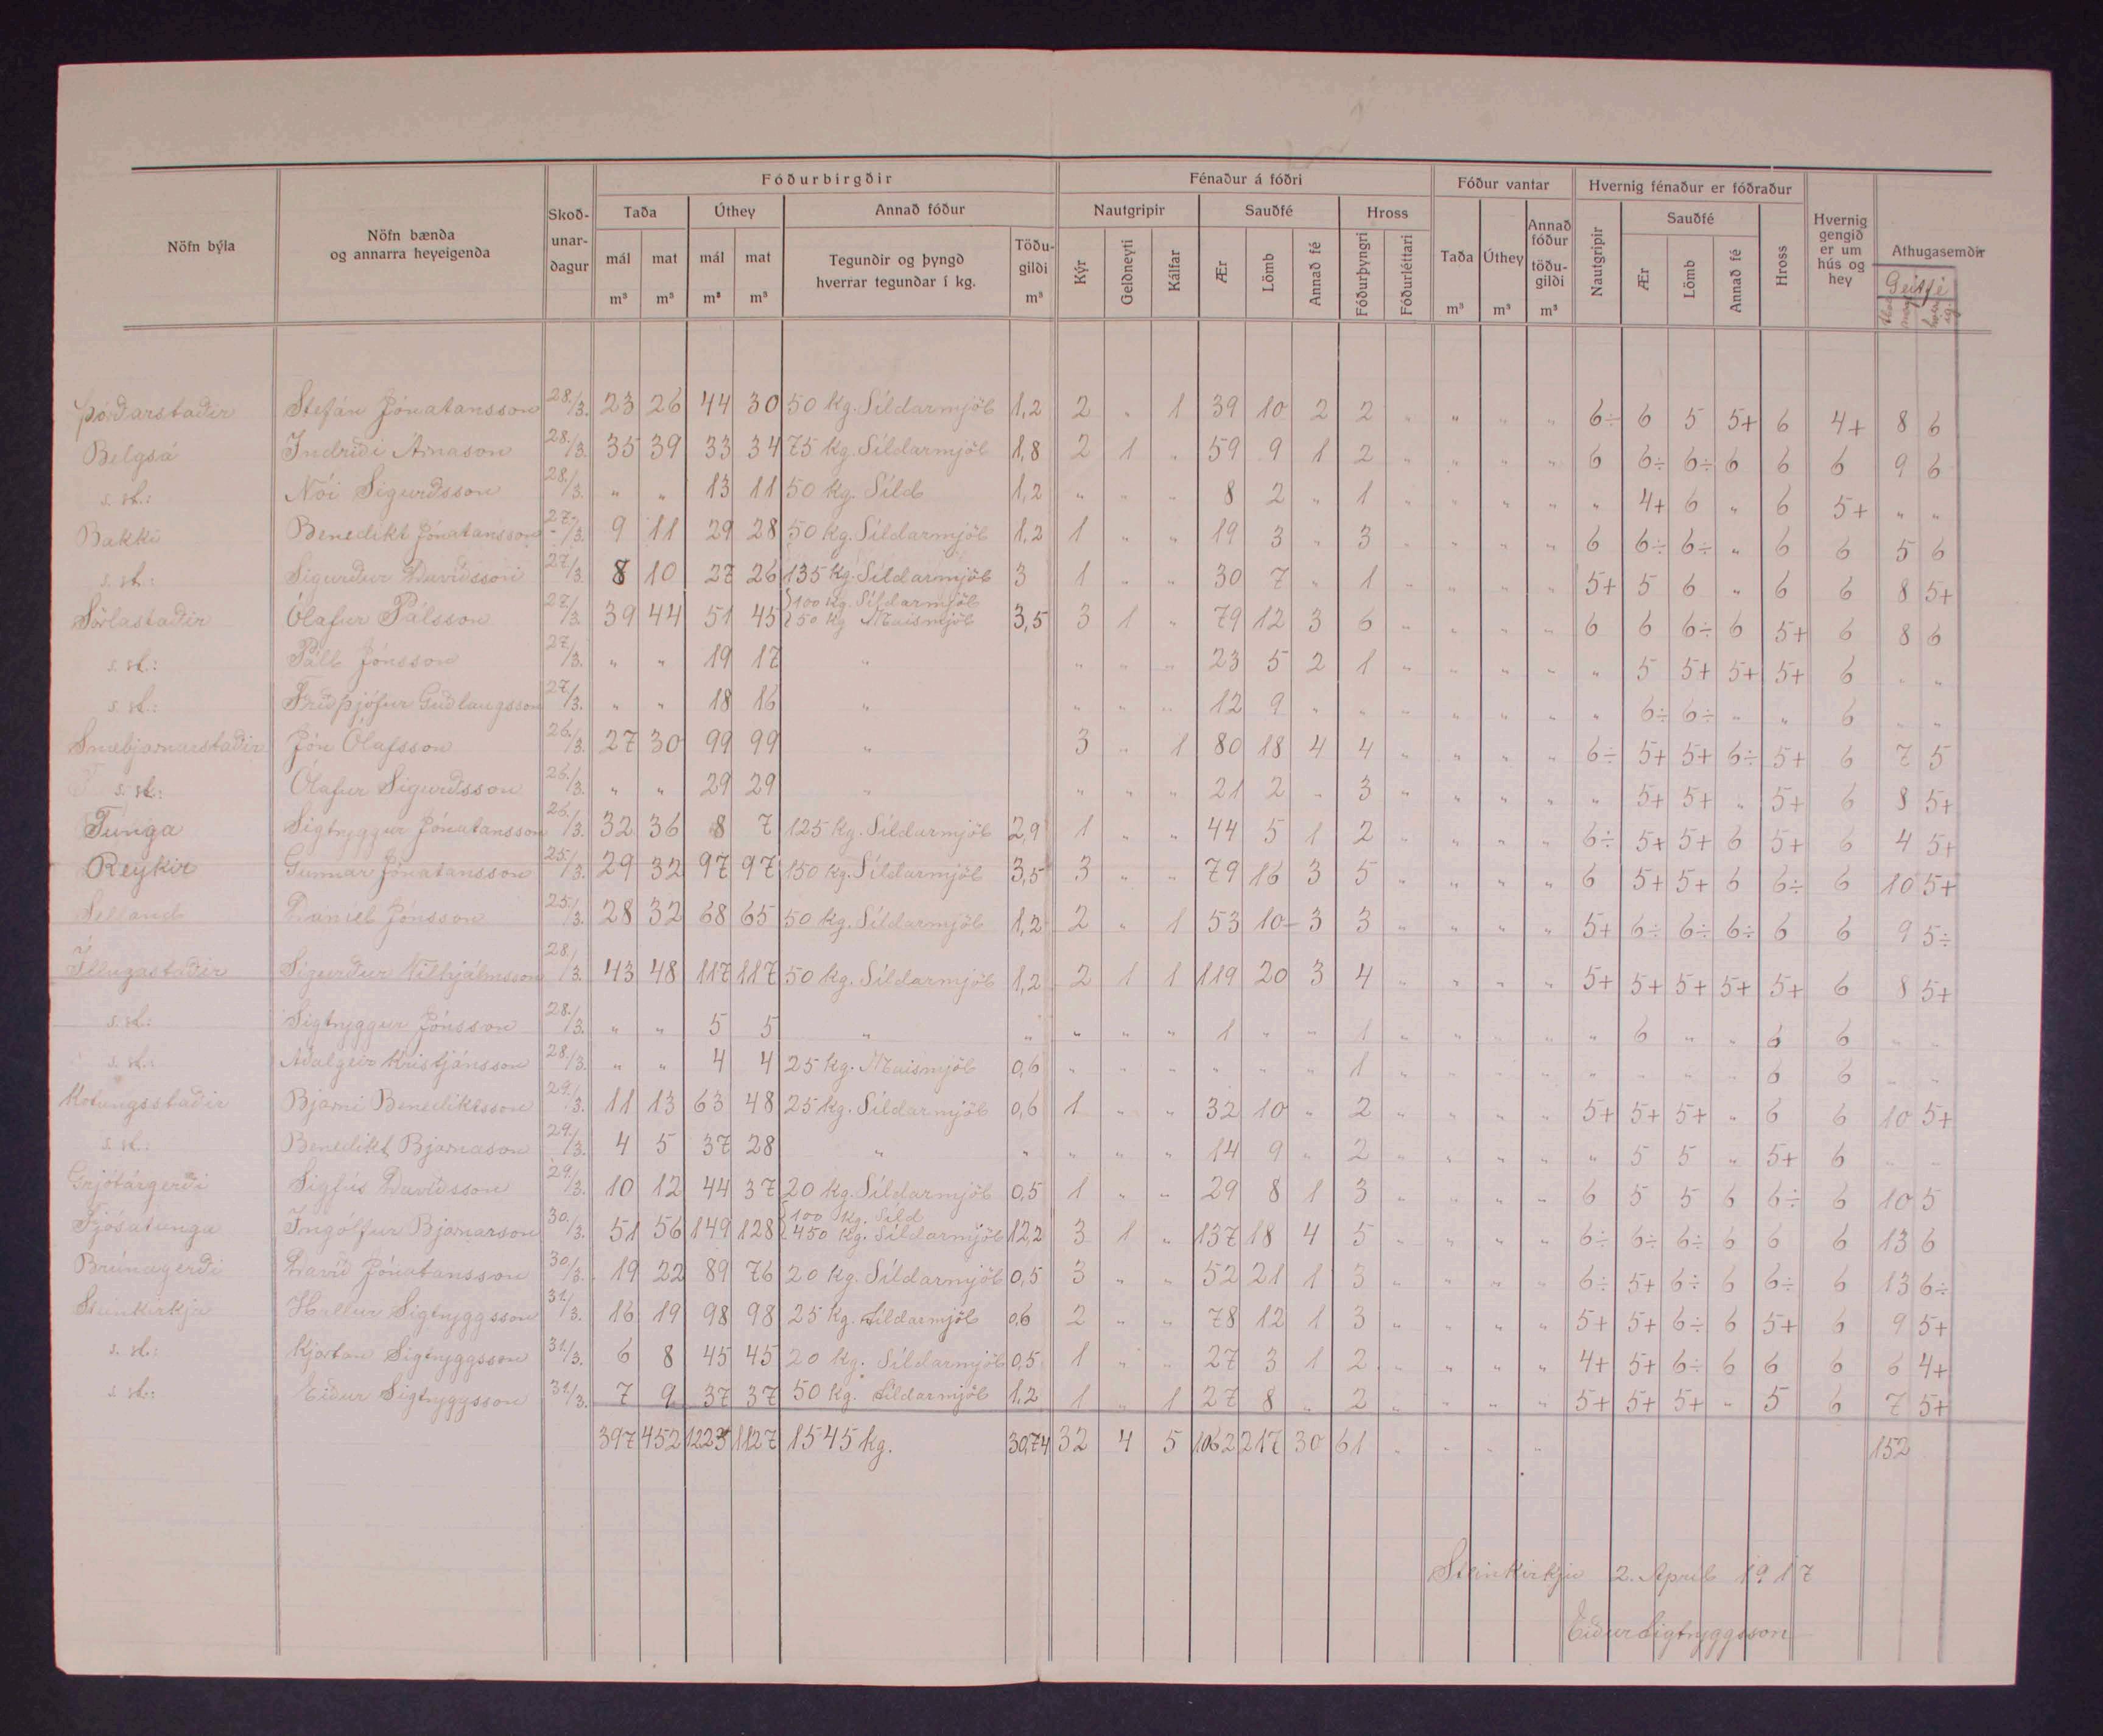 Fóðurbirgðir Fénaður á fóðri Fóður vantar Hvernig fénaður er fóðraður
Nöfn býla Nöfn bænda og annarra heyeigenda Skoðunardagur Taða Úthey Annað fóður Nautgripir Sauðfé Hross Taða Úthey Annað fóður töðugildi Nautgripir Sauðfé Hross Hvernig gengið er um hús og hey Athugasemdir
mál m³ mat m³ mál m³ mat m³ Tegundir og þyngd hverrar tegundar í kg. Töðugildi m³ Kýr Geldneyti Kálfar Ær Lömb Annað fé Fóðurþyngri Fóðurléttari m³ m³ m³ Ær Lömb Annað fé Geitfé
Þórðarstaðir Stefán Jónatansson 28./3. 23 26 44 30 50 kg. Síldarmjöl 1,2 2 " 1 39 10 2 2 " " " " 6÷ 6 5 5+ 6 4+ 8 6
Belgsá Indriði Árnason 28./3. 35 39 33 34 75 kg. Síldarmjöl 1,8 2 1 " 59 9 1 2 " " " " 6 6÷ 6÷ 6 6 6 9 6
s. st.: Nói Sigurðsson 28./3. " " 13 11 50 kg. Síld 1,2 " " " 8 2 " 1 " " " " " 4+ 6 " 6 5+ " "
Bakki Benedikt Jónatansson 27./3. 9 11 29 28 50 kg. Síldarmjöl 1,2 1 " " 19 3 " 3 " " " " 6 6÷ 6÷ " 6 6 5 6
s. st.: Sigurður Davíðsson 27/3. 8 10 27 26 135 kg. Síldarmjöl 3 1 " " 30 7 " 1 " " " " 5+ 5 6 " 6 6 8 5+
Sörlastaðir Ólafur Pálsson 27./3. 39 44 51 45 {100 kg. Síldarmjöl 50 kg Maismjöl 3,5 3 1 " 79 12 3 6 " " " " 6 6 6÷ 6 5+ 6 8 6
s. st.: Páll Jónsson 27/3. " " 19 17 " " " " 23 5 2 1 " " " " " 5 5+ 5+ 5+ 6 " "
s. st.: Friðþjófur Guðlaugsson 27./3. " " 18 16 " " " " 12 9 " " " " " " " 6÷ 6÷ " " 6 " "
Snæbjarnarstaðir Jón Ólafsson 26./3. 27 30 99 99 " 3 " 1 80 18 4 4 " " " " 6÷ 5+ 5+ 6÷ 5+ 6 7 5
s. st.: Ólafur Sigurðsson 26./3. " " 29 29 " " " " 21 2 " 3 " " " " " 5+ 5+ " 5+ 6 8 5+
Tunga Sigtryggur Jónatansson 26./3. 32 36 8 7 125 kg. Síldarmjöl 2,9 1 " " 44 5 1 2 " " " " 6÷ 5+ 5+ 6 5+ 6 4 5+
Reykir Gunnar Jónatansson 25./3. 29 32 97 97 150 kg. Síldarmjöl 3,5 3 " " 79 16 3 5 " " " " 6 5+ 5+ 6 6÷ 6 10 5+
Selland Daníel Jónsson 25./3. 28 32 68 65 50 kg. Síldarmjöl 1,2 2 " 1 53 10 3 3 " " " " 5+ 6÷ 6÷ 6÷ 6 6 9 5÷
Illugastaðir Sigurður Vilhjálmsson 28./3. 43 48 117 117 50 kg. Síldarmjöl 1,2 2 1 1 119 20 3 4 " " " " 5+ 5+ 5+ 5+ 5+ 6 8 5+
s. st.: Sigtryggur Jónsson 28./3. " " 5 5 " " " " " 1 " " 1 " " " " " 6 " " 6 6 " "
s. st.: Aðalgeir Kristjánsson 28./3. " " 4 4 25 kg. Maismjöl 0,6 " " " " " " 1 " " " " " " " " 6 6 " "
Kotungsstaðir Bjarni Benediktsson 29./3. 11 13 63 48 25 kg. Síldarmjöl 0,6 1 " " 32 10 " 2 " " " " 5+ 5+ 5+ " 6 6 10 5+
s. st.: Benedikt Bjarnason 29./3. 4 5 37 28 " " " " " 14 9 " 2 " " " " " 5 5 " 5+ 6 " "
Grjótárgerði Sigfús Davíðsson 29./3. 10 12 44 37 20 kg. Síldarmjöl 0,5 1 " " 29 8 1 3 " " " " 6 5 5 6 6÷ 6 10 5
Fjósatunga Ingólfur Bjarnarson 30./3. 51 56 149 128 {100 kg. Síld 450 kg. Síldarmjöl 12,2 3 1 " 137 18 4 5 " " " " 6÷ 6÷ 6÷ 6 6 6 13 6
Brúnagerði Davíð Jónatansson 30/3. 19 22 89 76 20 kg. Síldarmjöl 0,5 3 " " 52 21 1 3 " " " " 6÷ 5+ 6÷ 6 6÷ 6 13 6÷
Steinkirkja Hallur Sigtryggsson 31./3. 16 19 98 98 25 kg. Síldarmjöl 0,6 2 " " 78 12 1 3 " " " " 5+ 5+ 6÷ 6 5+ 6 9 5+
s. st.: Kjartan Sigtryggsson 31./3. 6 8 45 45 20 kg. Síldarmjöl 0,5 1 " " 27 3 1 2 " " " " 4+ 5+ 6÷ 6 6 6 6 4+
s. st.: Eiður Sigtryggsson 31./3. 7 9 37 37 50 kg. Síldarmjöl 1,2 1 " 1 27 8 " 2 " " " " 5+ 5+ 5+ " 5 6 7 5+
397 452 1223 1127 1545 kg. 30,74 32 4 5 1062 217 30 61 " " " " 152
Steinkirkju 2. Apríl 1917
Eiður Sigtryggsson